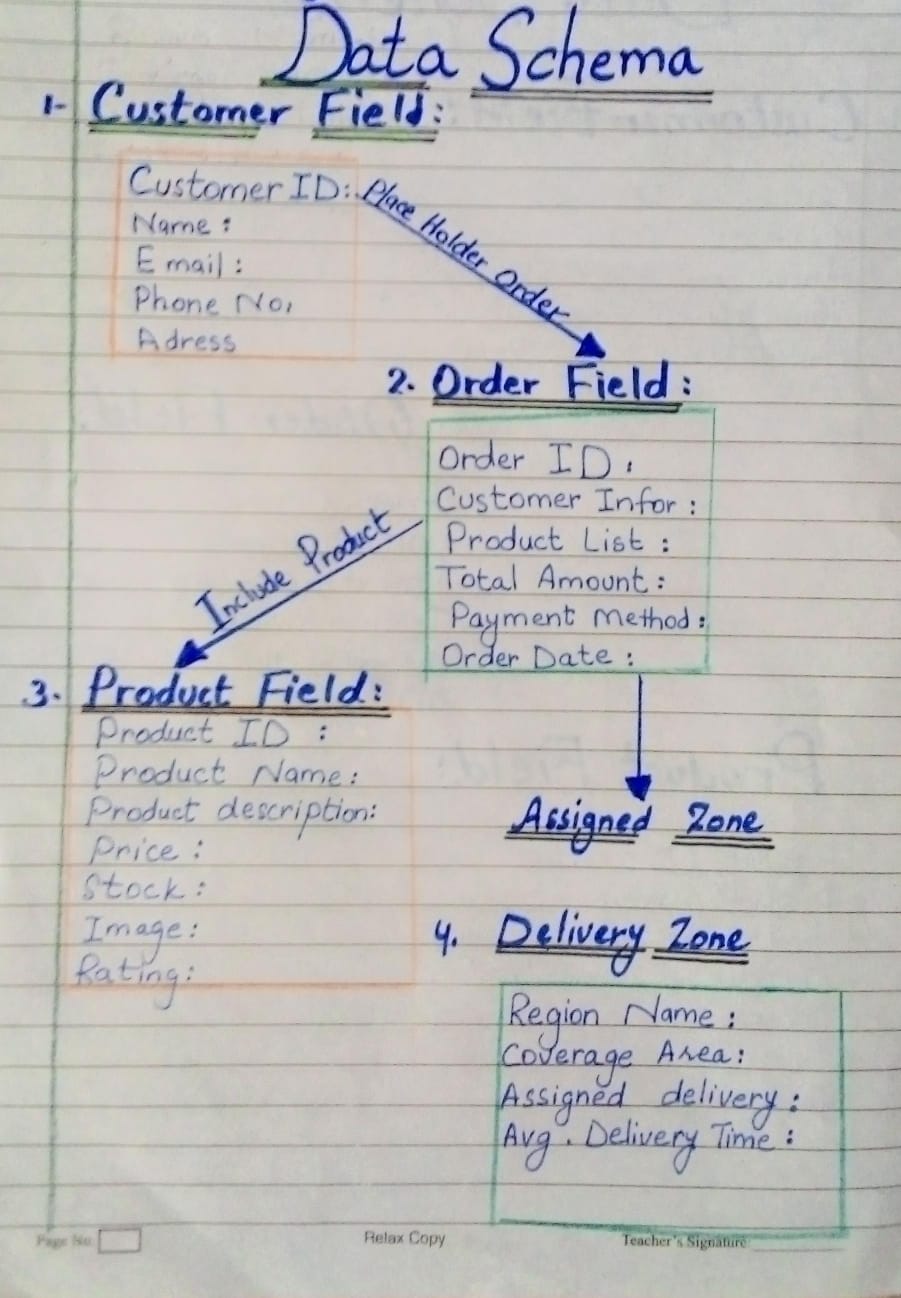 Data Schema
1- Customer Field:
Customer ID:
Place Holder Order
Name :
Email :
Phone No,
Adress
2. Order Field :
Order ID :
Customer Infor :
Product List :
Total Amount :
Payment Method :
Order Date :
Include Product
3. Product Field :
Product ID :
Product Name :
Product description:
Price :
Stock :
Image :
Rating :
Assigned Zone
4. Delivery Zone
Region Name :
Coverage Area :
Assigned delivery :
Avg . Delivery Time :
Page No.
Relax Copy
Teacher's Signature